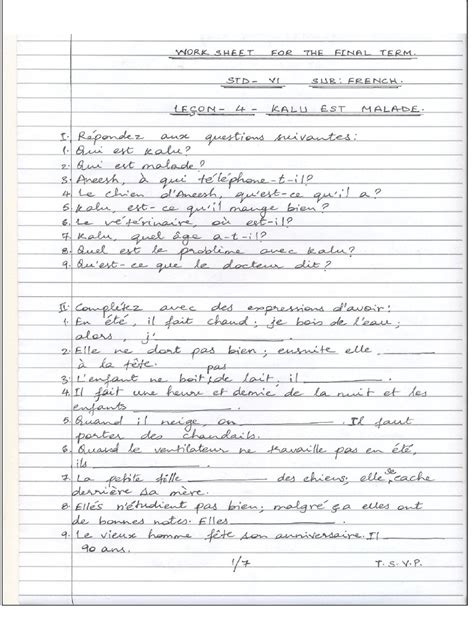 WORK SHEET FOR THE FINAL TERM.
STD- VI SUB: FRENCH.
LEÇON- 4 - KALU EST MALADE.
I. Répondez aux questions suivantes:
1. Qui est Kalu?
2. Qui est malade?
3. Aneesh, à qui téléphone-t-il?
4. Le chien d'Aneesh, qu'est-ce qu'il a?
5. Kalu, est-ce qu'il mange bien?
6. Le vétérinaire, où est-il?
7. Kalu, quel âge a-t-il?
8. Quel est le problème avec Kalu?
9. Qu'est-ce que le docteur dit?
II. Complétez avec des expressions d'avoir:
1. En été, il fait chaud; je bois de l'eau;
alors, j'
2. Elle ne dort pas bien; ensuite elle
à la tête.
3. L'enfant ne boit pas de lait; il
4. Il fait une heure et demie de la nuit et les
enfants
5. Quand il neige, on Il faut
porter des chandails.
6. Quand le ventilateur ne travaille pas en été,
ils
7. La petite fille des chiens; elle se cache
derrière sa mère.
8. Elles n'étudient pas bien; malgré ça elles ont
de bonnes notes. Elles
9. Le vieux homme fête son anniversaire. Il
90 ans.
1/7 T.S.V.P.